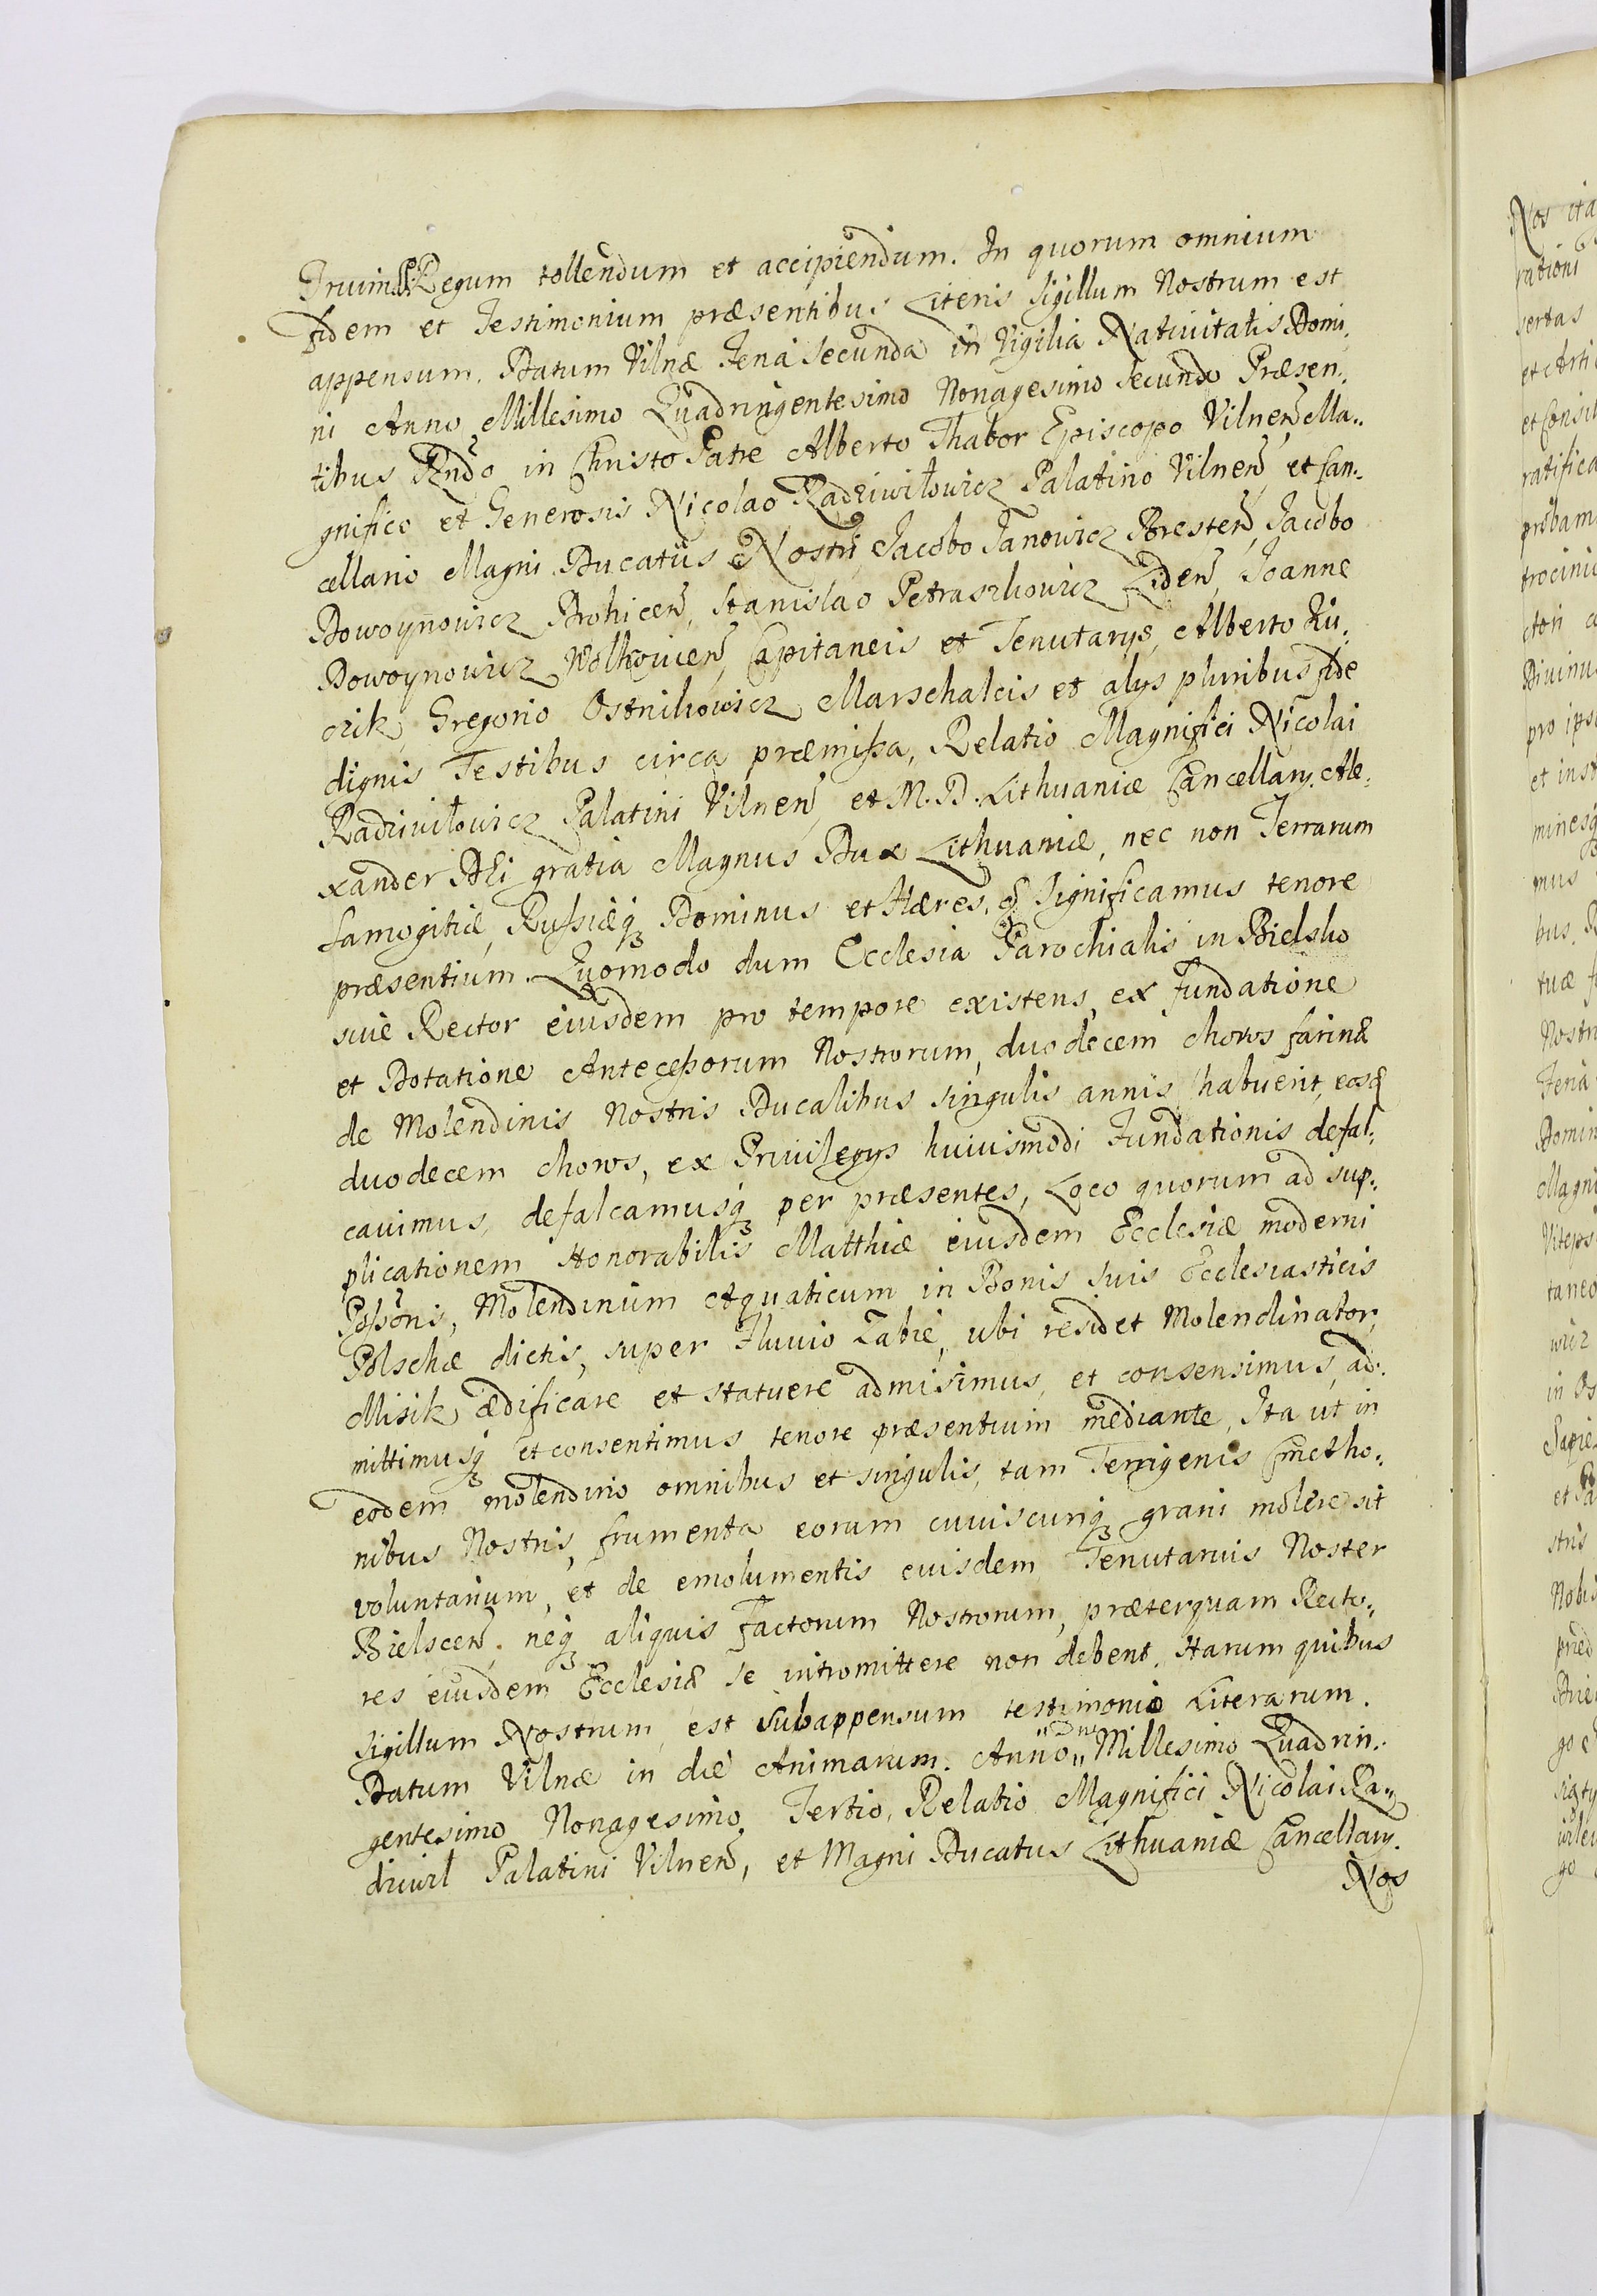 Trium SS. Regum tollendum et accipiendum. In quorum omnium
fidem et Testimonium præsentibus Literis Sigillum Nostrum est
appensum. Datum Vilnæ Feria Secunda in Vigilia Nativitatis Domi,
ni Anno Millesimo Quadringentesimo Nonagesimo Secundo Præsen,
tibus Rndo in Christo Patre Alberto Thabor Episcopo Vilnen Ma,,
gnifico et Generosis Nicolao Radziwiłowicz Palatino Vilnen, et Can,
cellario Magni Ducatûs Nostri, Jacobo Janowicz Bresten, Jacobo
Dowoynowicz Brohicen, Stanislao Petraszkowicz Liden, Joanne
Dowoynowicz Wolkowicen, Capitaneis et Tenutarys, Alberto Ku,
czik, Gregorio Ostnikowicz Marschalcis et alys pluribus fide
dignis Testibus circa præmissa, Relatio Magnifici Nicolai
Radziwiłowicz Palatini Vilnen, et M. D. Lithuaniæ Cancellary. Ale,
xander Dei gratia Magnus Dux Lithuaniæ, nec non Terrarum
Samogitiæ, Russiæq Dominus et Hæres, Significamus tenore
præsentium. Quomodo dum Ecclesia Parochialis in Bielsko
sive Rector eiusdem pro tempore existens, ex Fundatione
et Dotatione Antecessorum Nostrorum, duodecem choros farinæ
de Molendinis Nostris Ducalibus singulis annis habuerit, eosq
duodecem choros, ex Privilegys huiusmodi Fundationis defal,
cavimus, defalcamusq per præsentes, Loco quorum ad sup,
plicationem Honorabilis Matthiæ eiusdem Ecclesiæ moderni
Possoris, Molendinum Aquaticum in Bonis suis Ecclesiasticis
Polschæ dictis, super Fluvio Łabie, ubi residet Molendinator,
Misik, ædificare et statuere admisimus, et consensimus, ad,
mittimusq et consentimus tenore præsentium mediante, Ita ut in
eodem molendino omnibus et singulis, tam Terrigenis Cmetho,
nibus Nostris, frumenta eorum cuiuscunq grani molere sit
voluntarium, et de emolumentis euisdem Tenutarius Noster
Bielscen, neq aliquis Factorum Nostrorum, præterquam Recto,,
res eiusdem Ecclesiæ se intromittere non debent. Harum quibus
Sigillum Nostrum, est subappensum testimonio Literarum.
Datum Vilnæ in die Animarum. Anno Dni Millesimo Quadrin,
gentesimo Nonagesimo, Tertio, Relatio Magnifici Nicolai Ra,,
dziwil Palatini Vilnen, et Magni Ducatus Lithuaniæ Cancellary.
Nos